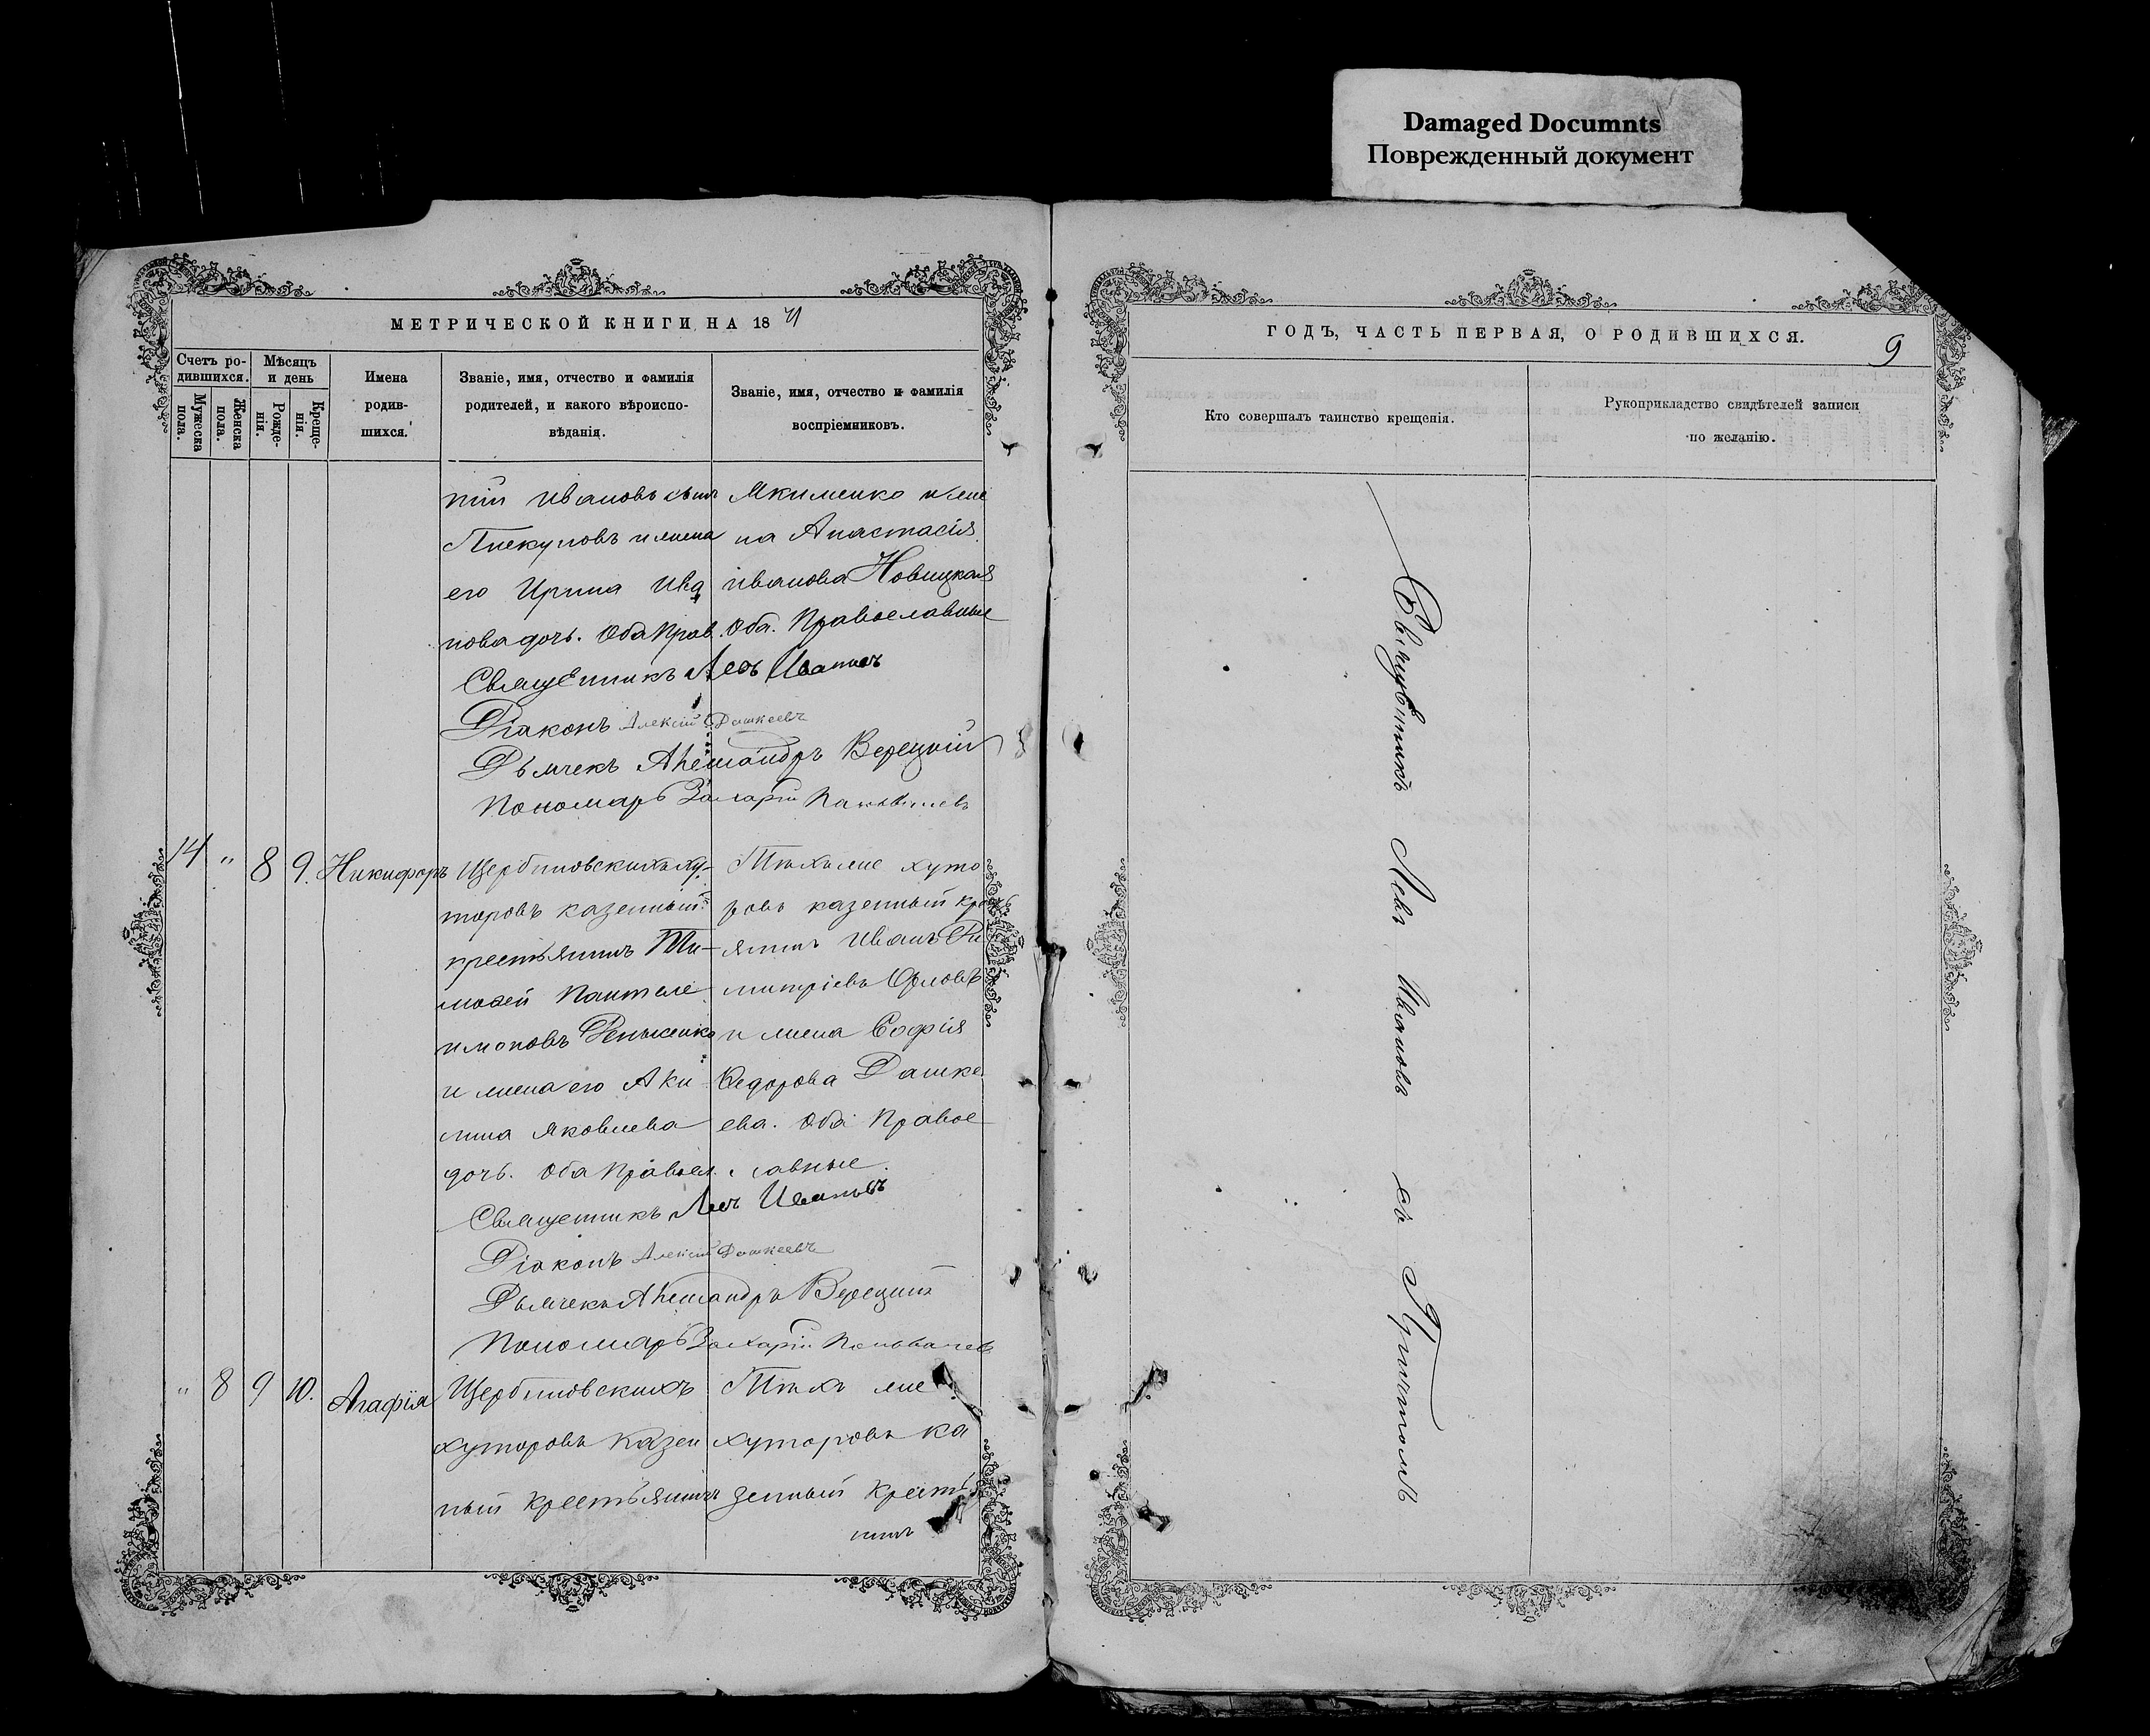 Damaged Documnts
Поврежденный документ
МЕТРИЧЕСКОЙ КНИГИ НА 1871
Счетъ ро-
дившихся.
Мужеска
пола.
Женска
пола.
Мѣсяцъ
и день
Рожде-
нія.
Креще-
нія.
Имена
родив-
шихся.
Званіе, имя, отчество и фамилія
родителей, и какого вѣроиспо-
вѣданія.
Званіе, имя, отчество и фамилія
воспріемниковъ.
Ивановъ сынъ
и жена
его Ирина Ива
нова дочь. Оба Прав.
Якименко и жена
на Анастасія
Иванова Новицкая
Оба Православные
Священникъ Левъ Ивановъ
Діаконъ Алексій Дашкеевъ
Дьячекъ Александръ Верецкій
Пономарь Захарій
14 " 8 9. Никифоръ
Щербиновскихъ ху-
торовъ казенный
крестьянинъ Ти-
мофей Пантеле
имоновъ
и жена его Аки-
лина Яковлева
дочь. Оба Правосл.
Тѣхъ же хуто
ровъ казенный крест
янинъ Иванъ Ди
митріевъ Орловъ
и жена Софія
Федорова Дашке
ева. Оба Правос
лавные.
Священникъ Левъ Ивановъ
Діаконъ Алексій Дашкеевъ
Дьячекъ Александръ Верецкій
Пономарь Захарій
" 8 9 10. Агафія
Щербиновскихъ
хуторовъ казен
ный крестьянинъ
Тѣхъ же
хуторовъ ка
зенный кресть
нинъ
ГОДЪ, ЧАСТЬ ПЕРВАЯ, О РОДИВШИХСЯ.
9
Кто совершалъ таинство крещенія.
Рукоприкладство свидѣтелей записи
по желанію.
Священникъ Левъ Ивановъ съ Причтомъ